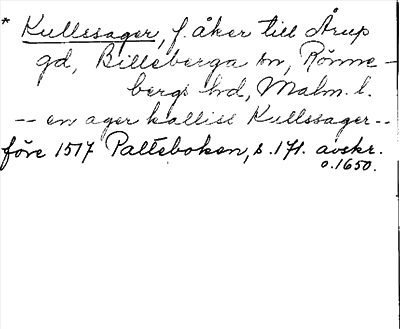 * Kullssager, f. åker till Årup
gd, Billeberga sn, Rönne-
bergs hd, Malm. l.
-- en ager kalliss Kullssager --
före 1517 Palteboken, s. 171. avskr.
o. 1650.